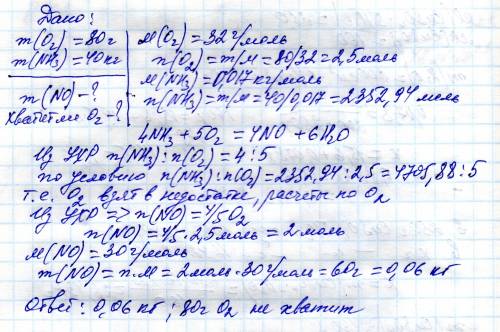 Дано:
m(O₂) = 80г
m(NH₃) = 40кг
m(NO) - ?
хватит ли O₂ - ?
M(O₂) = 32г/моль
n(O₂) = m/M = 80/32 = 2,5моль
M(NH₃) = 0,017 кг/моль
n(NH₃) = m/M = 40/0,017 = 2352,94 моль
4NH₃ + 5O₂ = 4NO + 6H₂O
Из УХР n(NH₃) : n(O₂) = 4 : 5
по условию n(NH₃) : n(O₂) = 2352,94 : 2,5 = 4705,88 : 5
т.е. O₂ взят в недостатке, расчеты по O₂
Из УХР => n(NO) = 4/5 O₂
n(NO) = 4/5 · 2,5моль = 2 моль
M(NO) = 30г/моль
m(NO) = n·M = 2моль · 30г/моль = 60г = 0,06 кг
Ответ: 0,06 кг ; 80г O₂ не хватит